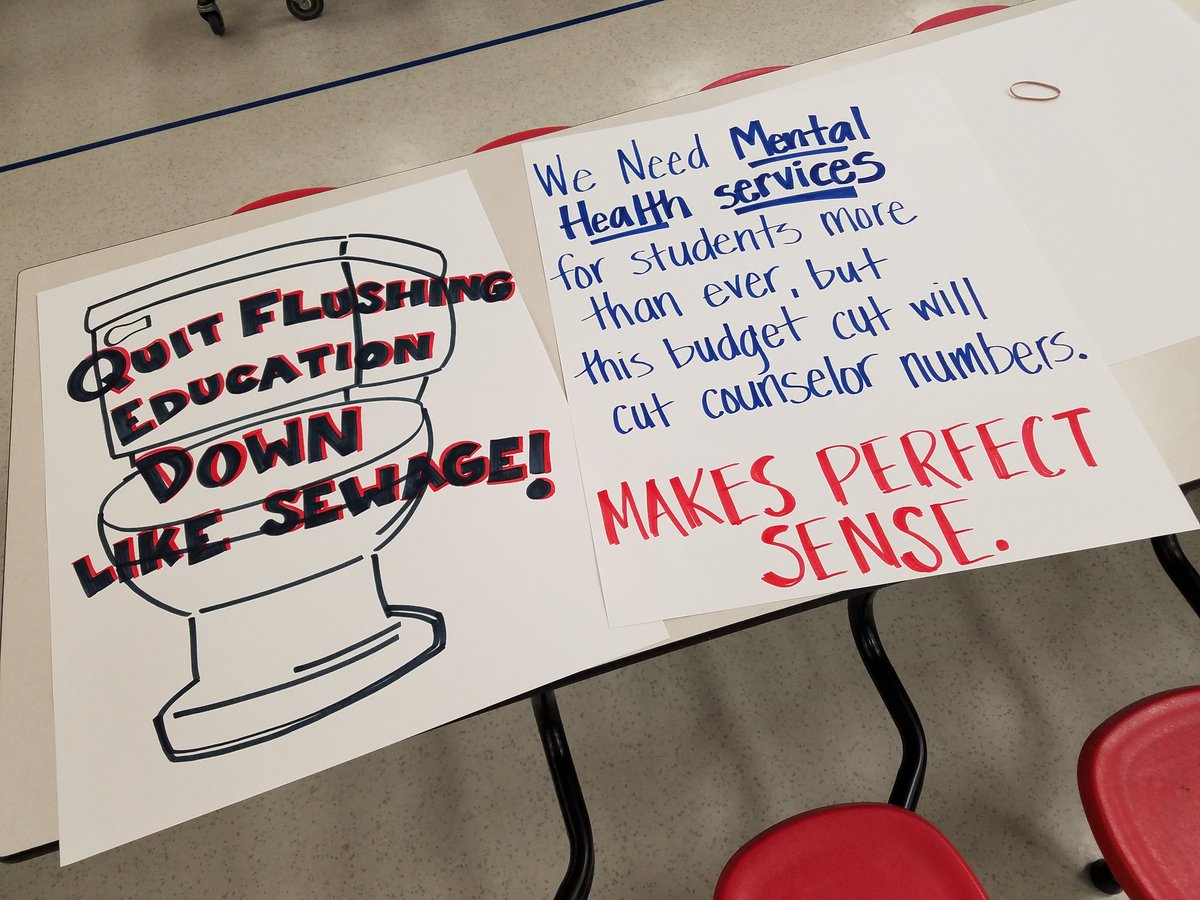 QUIT FLUSHING
EDUCATION
DOWN
LIKE SEWAGE!
We Need Mental
Health services
for students more
than ever, but
this budget cut will
cut counselor numbers.
MAKES PERFECT
SENSE.